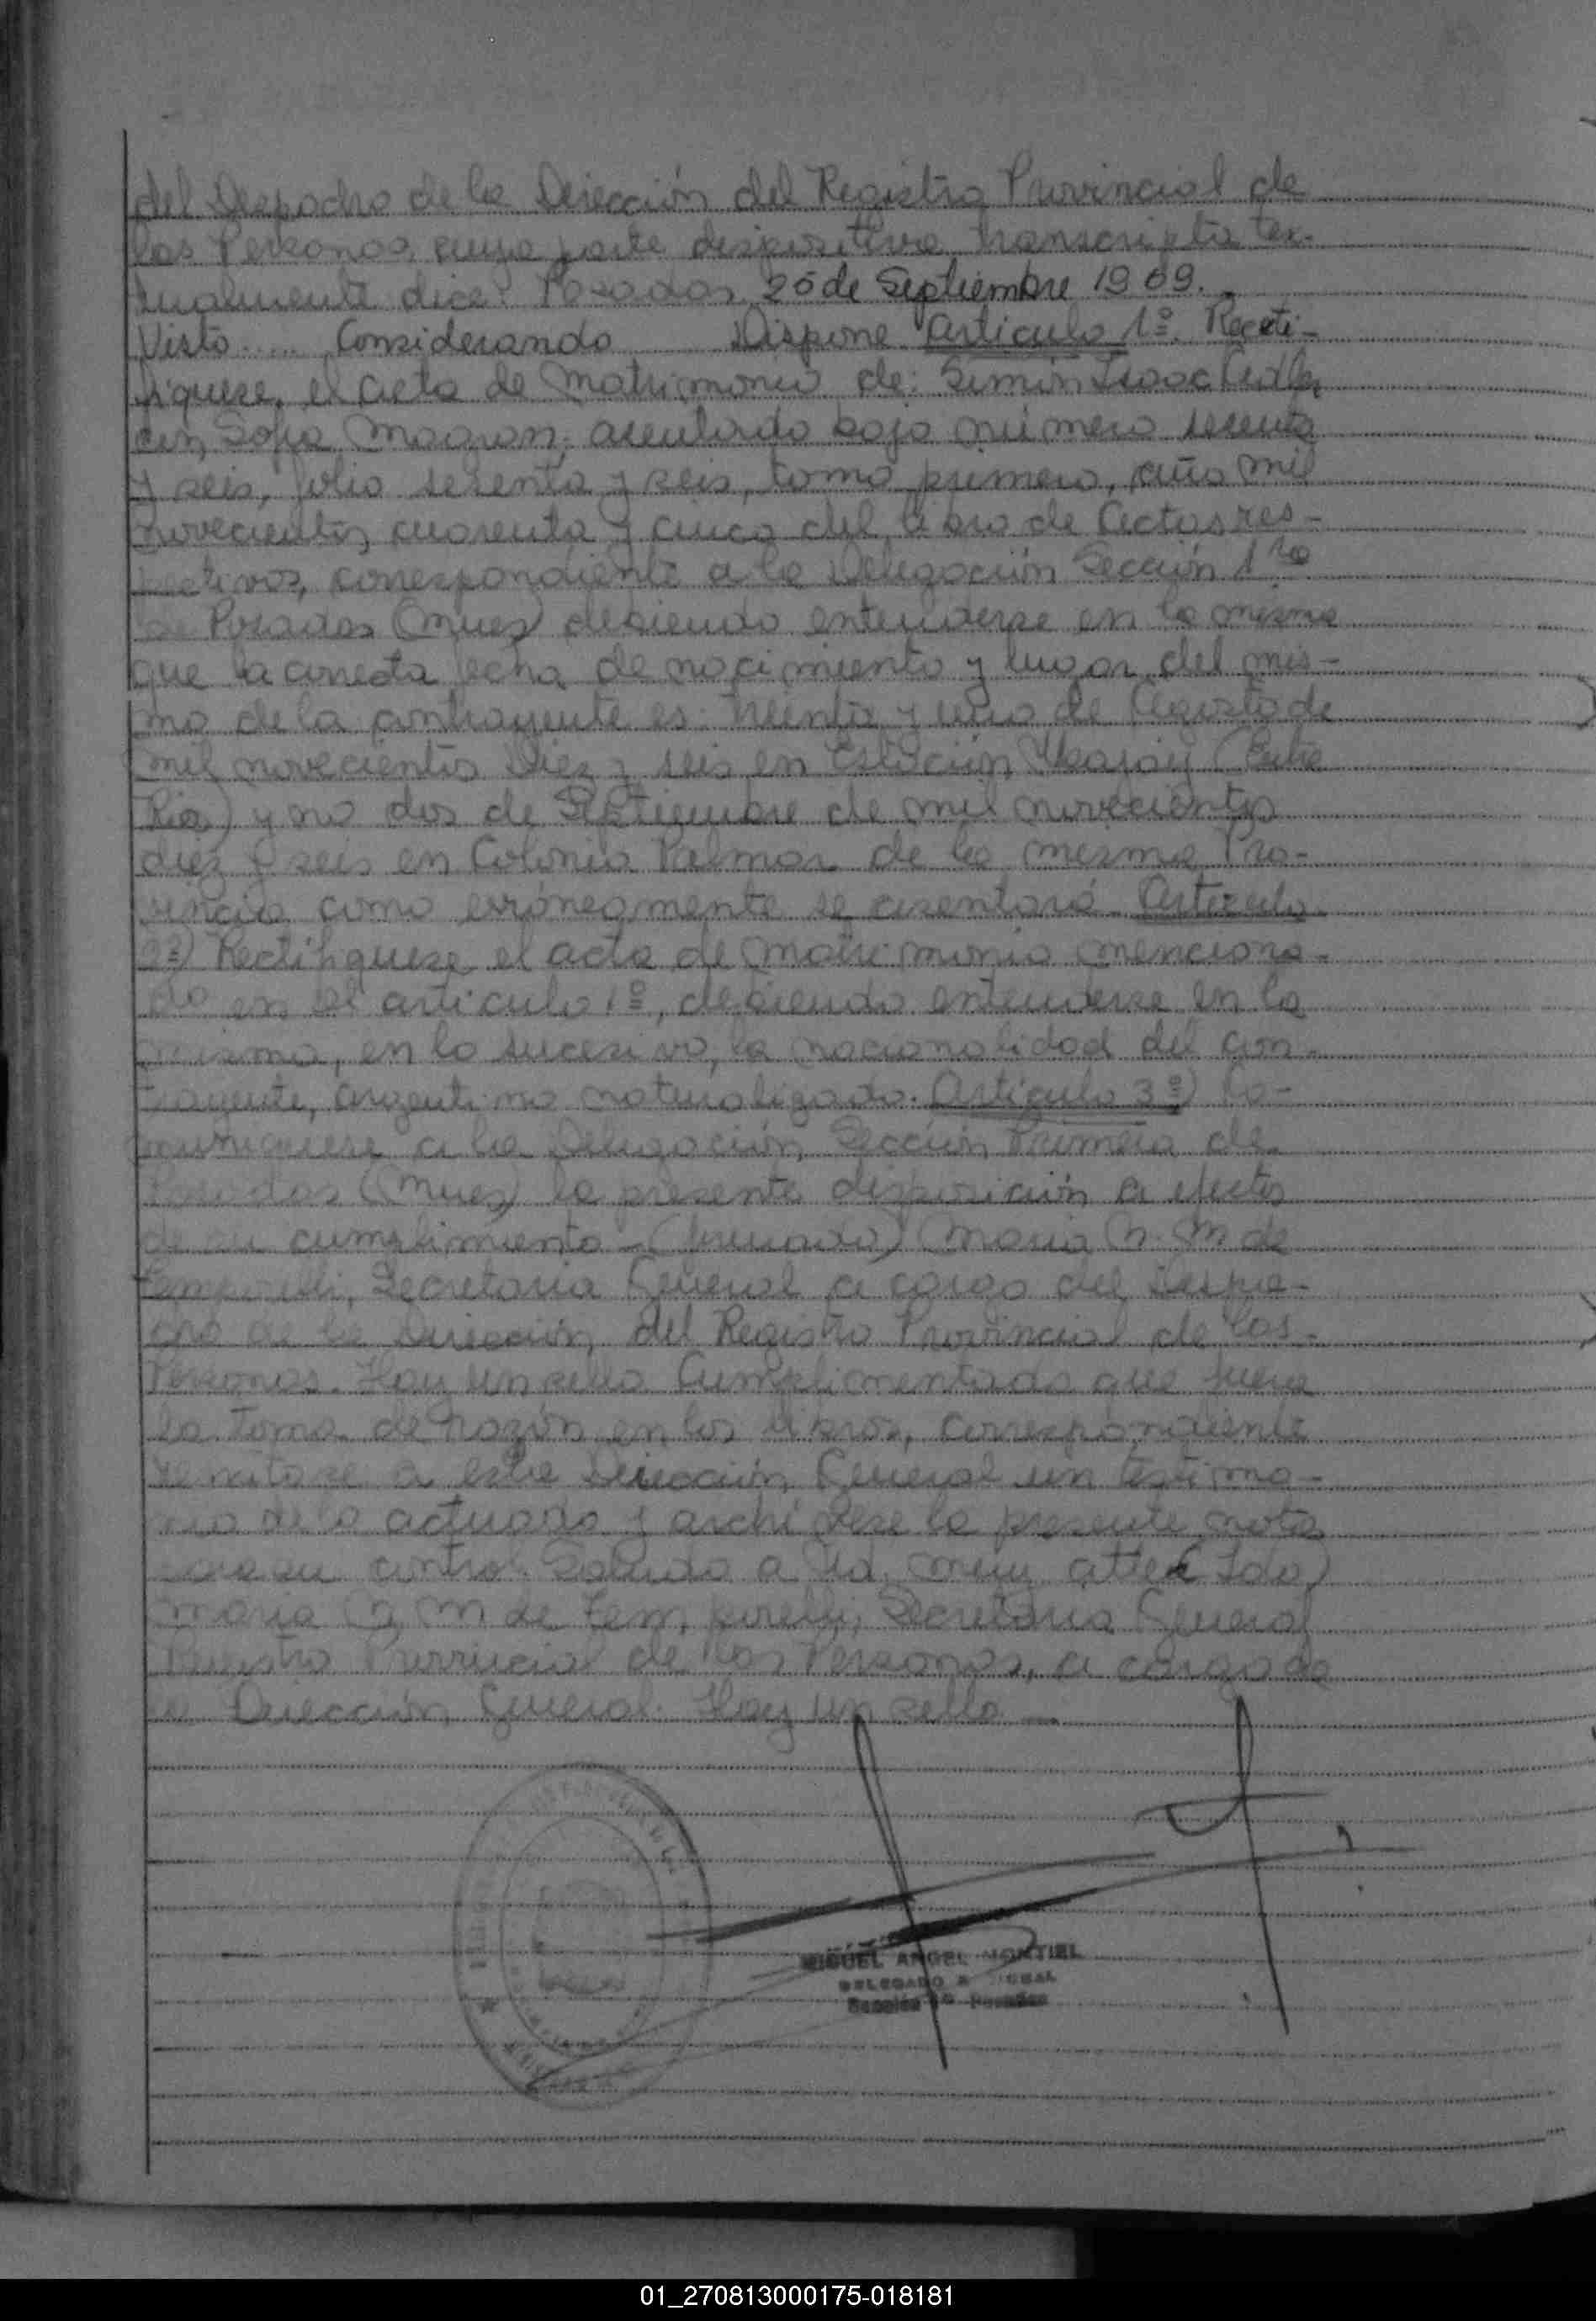 del Despacho de la Dirección del Registro Provincial de
las Personas, cuya parte dispositiva transcripta tex-
tualmente dice: Posadas, 25 de Septiembre 1969.
Visto ..... Considerando ..... Dispone Articulo 1º. Recti-
fiquese, el acta de Matrimonio de: Simón Isaac
con, Sofia asentado bajo número sesenta
y seis, folio sesenta y seis, tomo primero, año mil
novecientos cuarenta y cinco del libro de Actas res-
pectivos, correspondiente a la Delegación Sección 1ra
de Posadas (Mnes) debiendo entenderse en la misma
que la correcta fecha de nacimiento y lugar del mis-
mo de la contrayente es: treinta y uno de Agosto de
mil novecientos Diez y seis en Estación (Entre
Rios) y no dos de Septiembre de mil novecientos
diez y seis en Colonia Palmar de la misma Pro-
vincia como erróneamente se asentará. Articulo
2º) Rectifiquese el acta de Matrimonio menciona-
do en el articulo 1º, debiendo entenderse en la
misma, en lo sucesivo, la nacionalidad del con-
trayente, argentino naturalizado. Articulo 3º) Co-
muniquese a la Delegación Sección Primera de
Posadas (Mnes) la presente disposición a efectos
de su cumplimiento - (firmado) Maria M. de
Secretaria General a cargo del Despa-
cho de la Dirección del Registro Provincial de las
Personas. Hay un sello Cumplimentado que fuera
la toma de razón en los libros, correspondiente
remitase a esta Dirección General un testimo-
nio de lo actuado y archivese la presente nota
para su control. Saludo a Ud. muy atte (Fdo)
Maria M de Secretaria General
Registro Provincial de las Personas, a cargo de
la Dirección General. Hay un sello —
MIGUEL ANGEL MONTIEL
DELEGADO
Sección Posadas
01_270813000175-018181